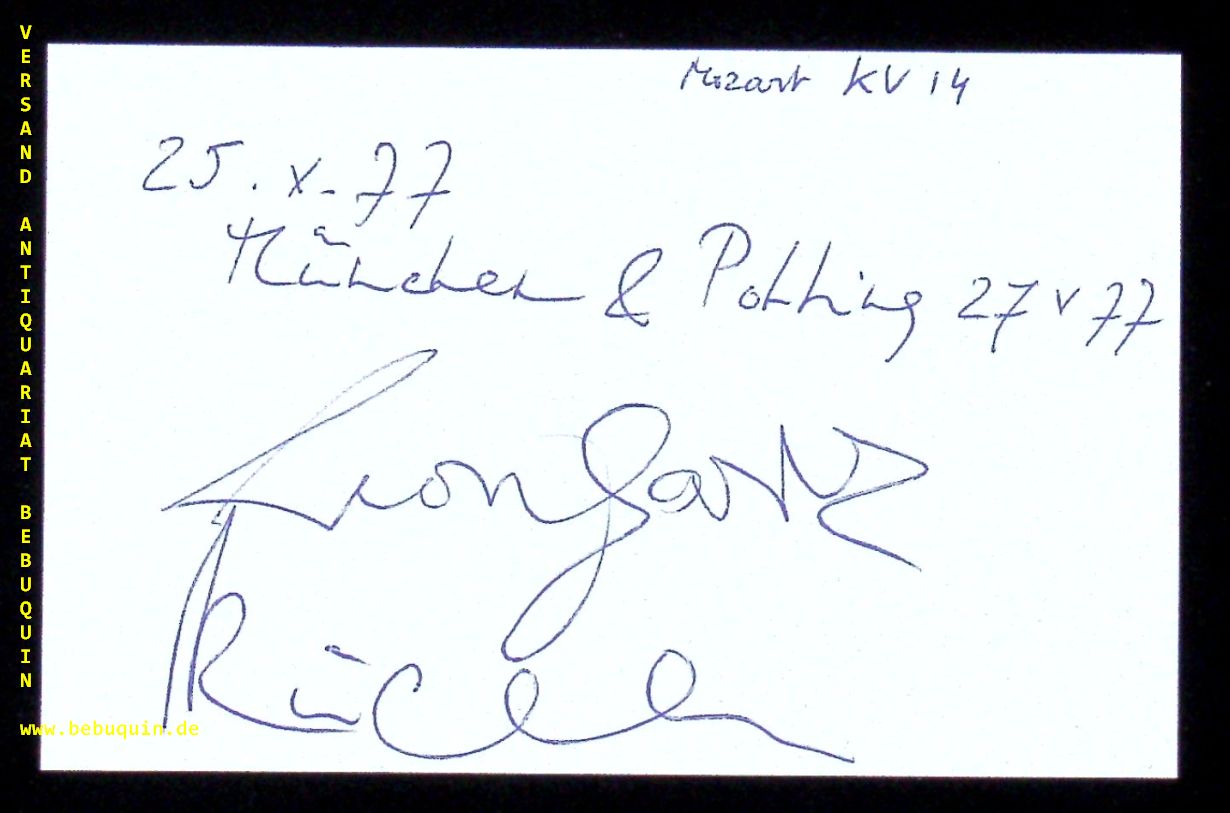 VERSAND ANTIQUARIAT BEBUQUIN
Mozart KV 14
25. X. 77
München & Polling 27 V 77
Leonhard
www.bebuquin.de